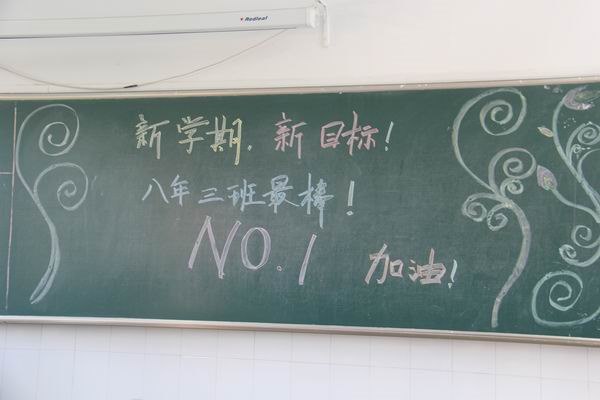 Redleaf
新学期，新目标！
八年三班最棒！
NO.1 加油！